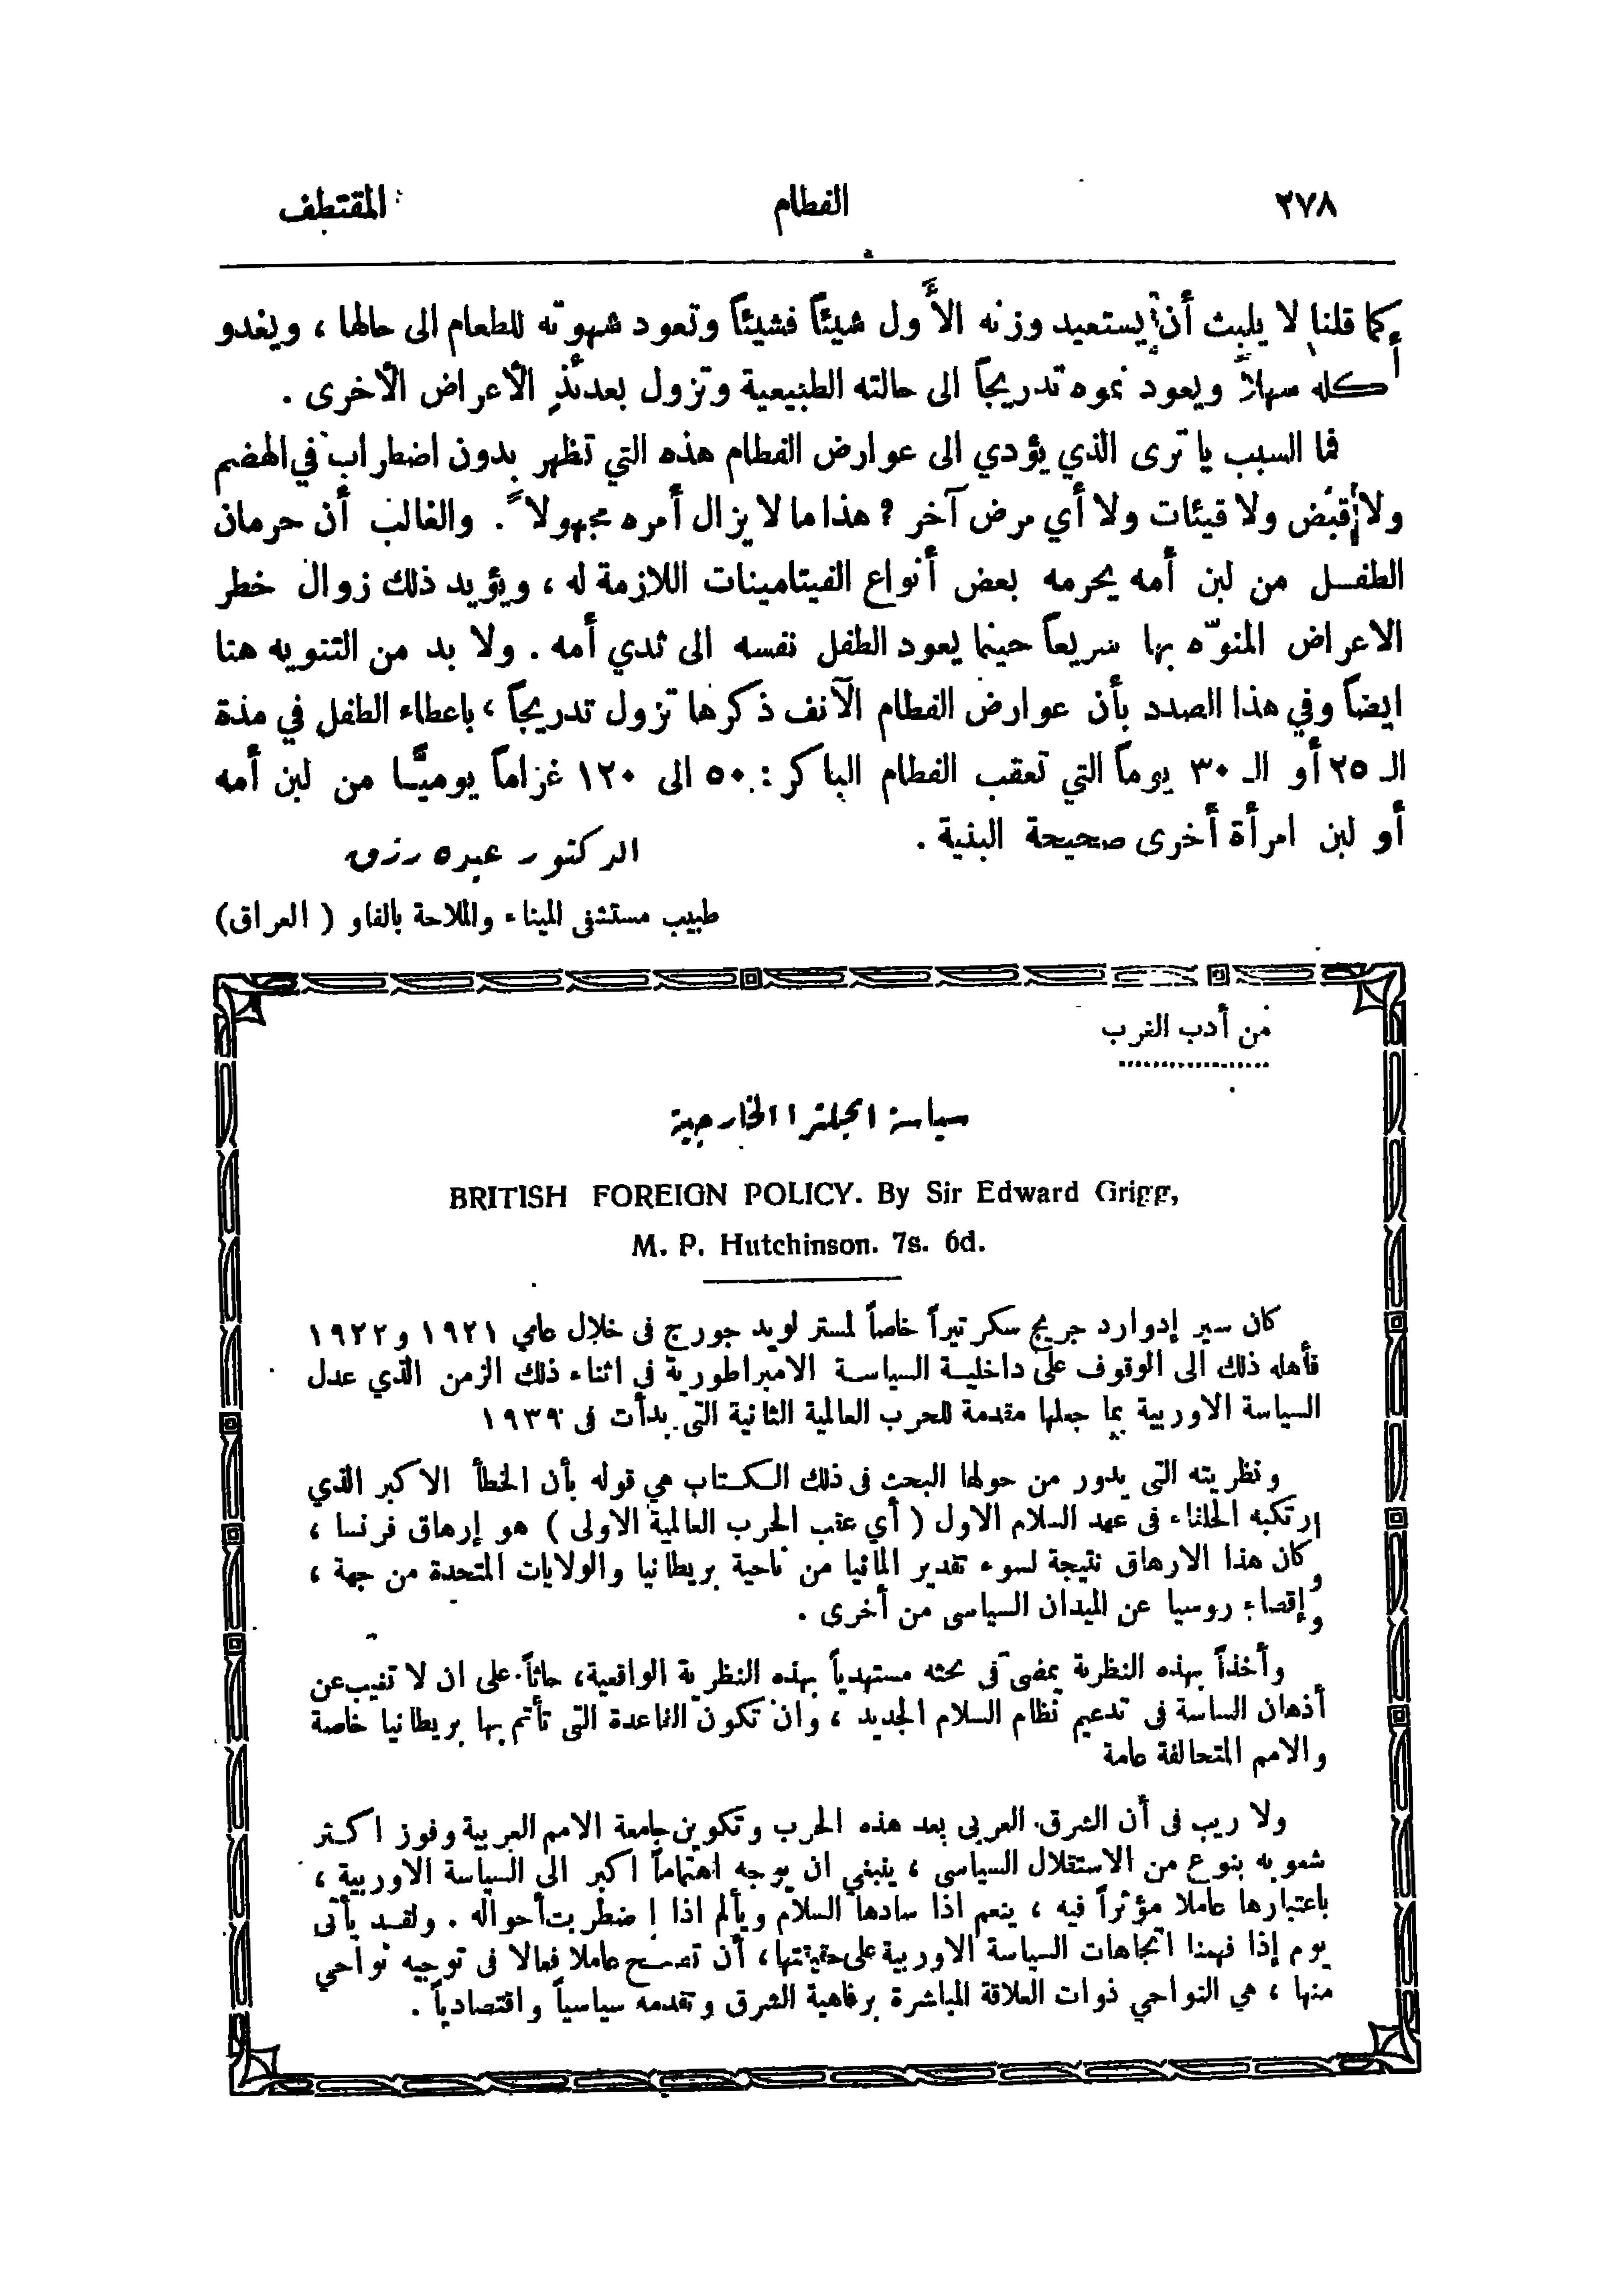 ٢٧٨ الفطام المقتطف
كما قلنا لا يلبث أن يستعيد وزنه الأول شيئاً فشيئاً وتعود شهوته للطعام الى حالها ، ويغدو
أكله سهلاً ويعود نموه تدريجاً الى حالته الطبيعية وتزول بعدئذٍ الأعراض الأخرى .
فما السبب يا ترى الذي يؤدي الى عوارض الفطام هذه التي تظهر بدون اضطراب في الهضم
ولا قبض ولا قيئات ولا أي مرض آخر ? هذا ما لا يزال أمره مجهولاً . والغالب أن حرمان
الطفل من لبن أمه يحرمه بعض أنواع الفيتامينات اللازمة له ، ويؤيد ذلك زوال خطر
الاعراض المنوّه بها سريعاً حينما يعود الطفل نفسه الى ثدي أمه . ولا بد من التنويه هنا
ايضاً وفي هذا الصدد بأن عوارض الفطام الآنف ذكرها تزول تدريجاً ، باعطاء الطفل في مدة
الـ ٢٥ أو الـ ٣٠ يوماً التي تعقب الفطام الباكر : ٥٠ الى ١٢٠ غراماً يوميًّا من لبن أمه
أو لبن امرأة أخرى صحيحة البنية .
الدكتور عبده رزق
طبيب مستشفى الميناء والملاحة بالفاو ( العراق )
من أدب الغرب
سياسة انجلترا الخارجية
BRITISH FOREIGN POLICY. By Sir Edward Grigg,
M. P. Hutchinson. 7s. 6d.
كان سير إدوارد جريج سكرتيراً خاصاً لمستر لويد جورج فى خلال عامي ١٩٢١ و ١٩٢٢
فأهله ذلك الى الوقوف على داخلية السياسة الامبراطورية في اثناء ذلك الزمن الذي عدل
السياسة الاوربية بما جعلها مقدمة للحرب العالمية الثانية التى بدأت فى ١٩٣٩
ونظريته التى يدور من حولها البحث فى ذلك الكتاب هي قوله بأن الخطأ الاكبر الذي
إرتكبه الحلفاء فى عهد السلام الاول ( أي عقب الحرب العالمية الاولى ) هو إرهاق فرنسا ،
وكان هذا الارهاق نتيجة لسوء تقدير المانيا من ناحية بريطانيا والولايات المتحدة من جهة ،
وإقصاء روسيا عن الميدان السياسى من أخرى .
وأخذاً بهذه النظرية يمضى فى بحثه مستهدياً بهذه النظرية الواقعية، حاثاً على ان لا تغيب عن
أذهان الساسة فى تدعيم نظام السلام الجديد ، وان تكون القاعدة التى تأتم بها بريطانيا خاصة
والامم المتحالفة عامة
ولا ريب فى أن الشرق العربى بعد هذه الحرب وتكوين جامعة الامم العربية وفوز اكثر
شعوبه بنوع من الاستقلال السياسى ، ينبغي ان يوجه اهتماماً اكبر الى السياسة الاوربية ،
باعتبارها عاملا مؤثراً فيه ، ينعم اذا سادها السلام ويألم اذا إضطربت أحواله . ولقد يأتى
يوم إذا فهمنا اتجاهات السياسة الاوربية على حقيقتها، أن تصبح عاملا فعالا فى توجيه نواحي
منها ، هي النواحي ذوات العلاقة المباشرة برفاهية الشرق وتقدمه سياسياً واقتصادياً .